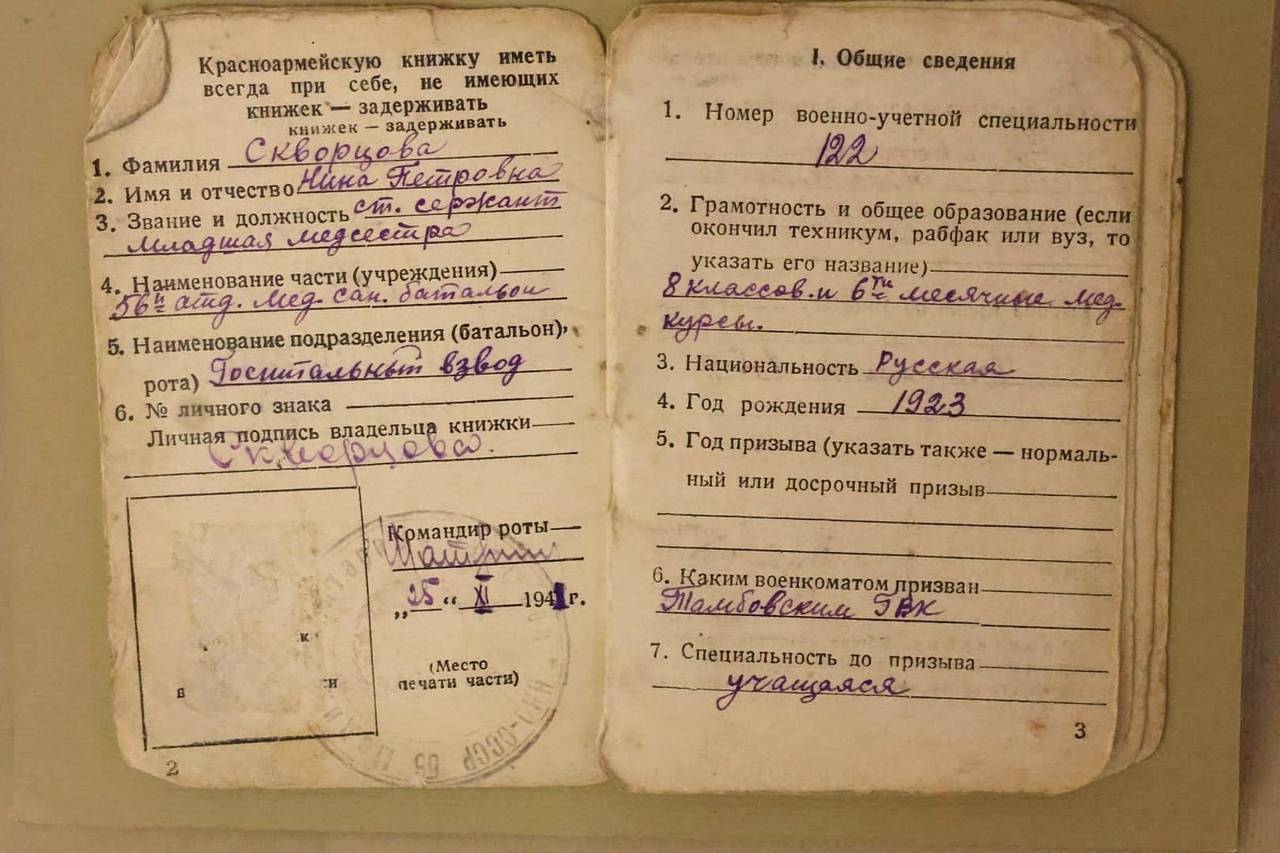 Красноармейскую книжку иметь
всегда при себе, не имеющих
книжек — задерживать
книжек — задерживать
1. Фамилия Скворцова
2. Имя и отчество Нина Петровна
3. Звание и должность ст. сержант
младшая медсестра
4. Наименование части (учреждения)
56й отд. мед. сан. батальон
5. Наименование подразделения (батальон),
рота) Госпитальный взвод
6. № личного знака
Личная подпись владельца книжки
Скворцова.
Командир роты
„25“ XI 1941г.
(Место
печати части)
к
в
ти
СССР
2
I. Общие сведения
1. Номер военно-учетной специальности
122
2. Грамотность и общее образование (если
окончил техникум, рабфак или вуз, то
указать его название)
8 классов. и 6ти месячные мед.
курсы.
3. Национальность Русская
4. Год рождения 1923
5. Год призыва (указать также — нормаль-
ный или досрочный призыв
6. Каким военкоматом призван
Тамбовским ГВК
7. Специальность до призыва
учащаяся
3